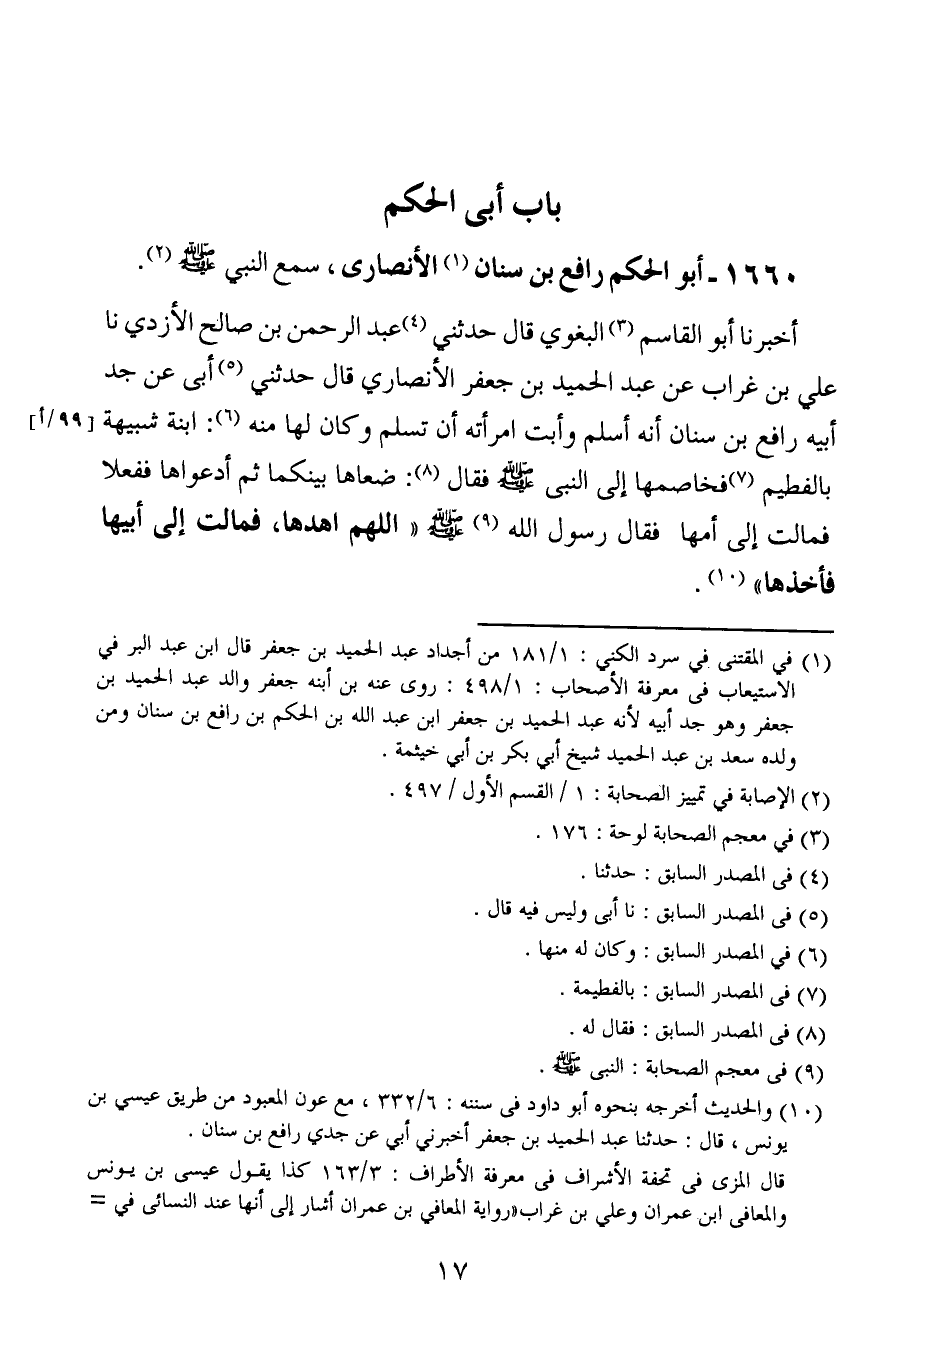 باب أبى الحكم
١٦٦٠ ـ أبو الحكم رافع بن سنان (١) الأنصارى ، سمع النبي ﷺ (٢).
أخبرنا أبو القاسم (٣) البغوي قال حدثني (٤)عبد الرحمن بن صالح الأزدي نا
علي بن غراب عن عبد الحميد بن جعفر الأنصاري قال حدثني (٥) أبى عن جد
أبيه رافع بن سنان أنه أسلم وأبت امرأته أن تسلم وكان لها منه (٦): ابنة شبيهة [٩٩/أ]
بالفطيم (٧)فخاصمها إلى النبى ﷺ فقال (٨): ضعاها بينكما ثم أدعواها ففعلا
فمالت إلى أمها فقال رسول الله (٩) ﷺ « اللهم اهدها، فمالت إلى أبيها
فأخذها» (١٠) .
(١) في المقتنى في سرد الكني : ١٨١/١ من أجداد عبد الحميد بن جعفر قال ابن عبد البر في
الاستيعاب فى معرفة الأصحاب : ٤٩٨/١ : روى عنه بن أبنه جعفر والد عبد الحميد بن
جعفر وهو جد أبيه لأنه عبد الحميد بن جعفر ابن عبد الله بن الحكم بن رافع بن سنان ومن
ولده سعد بن عبد الحميد شيخ أبي بكر بن أبي خيثمة .
(٢) الإصابة في تمييز الصحابة : ١ / القسم الأول / ٤٩٧ .
(٣) في معجم الصحابة لوحة : ١٧٦ .
(٤) فى المصدر السابق : حدثنا .
(٥) فى المصدر السابق : نا أبى وليس فيه قال .
(٦) في المصدر السابق : وكان له منها .
(٧) فى المصدر السابق : بالفطيمة .
(٨) فى المصدر السابق : فقال له .
(٩) فى معجم الصحابة : النبى ﷺ .
(١٠) والحديث أخرجه بنحوه أبو داود فى سننه : ٣٣٢/٦ ، مع عون المعبود من طريق عيسي بن
يونس ، قال : حدثنا عبد الحميد بن جعفر أخبرني أبي عن جدي رافع بن سنان .
قال المزى فى تحفة الأشراف فى معرفة الأطراف : ١٦٣/٣ كذا يقول عيسى بن يونس
والمعافى ابن عمران وعلي بن غراب«رواية المعافي بن عمران أشار إلى أنها عند النسائى في =
١٧